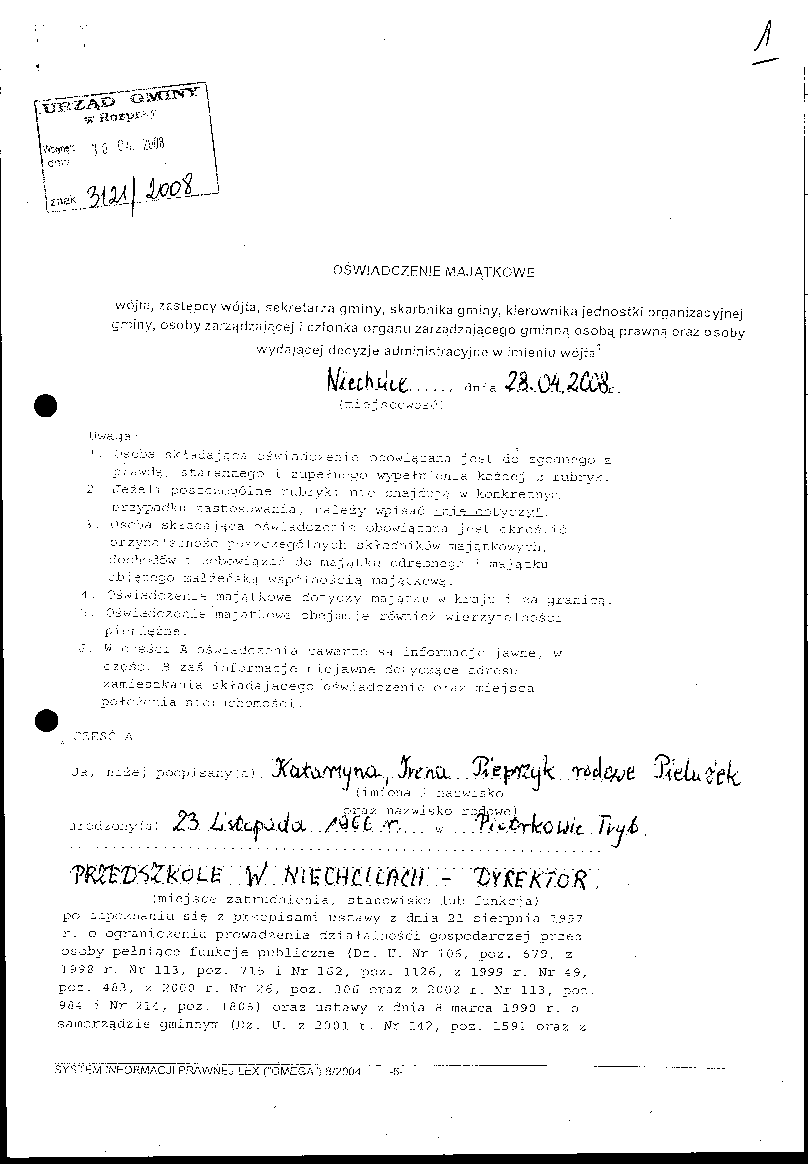 1
URZĄD GMINY
w Rozprzy
Wpłynęło
dnia 30 04. 2008
znak 3121/2008
OŚWIADCZENIE MAJĄTKOWE
wójta, zastępcy wójta, sekretarza gminy, skarbnika gminy, kierownika jednostki organizacyjnej
gminy, osoby zarządzającej i członka organu zarządzającego gminną osobą prawną oraz osoby
wydającej decyzje administracyjne w imieniu wójta
Niechcice ......, dnia 28.04.2008r.
(miejscowość)
Uwaga:
1. Osoba składająca oświadczenie obowiązana jest do zgodnego z
prawdą, starannego i zupełnego wypełnienia każdej z rubryk.
2. Jeżeli poszczególne rubryki nie znajdują w konkretnym
przypadku zastosowania, należy wpisać "nie dotyczy".
3. Osoba składająca oświadczenie obowiązana jest określić
przynależność poszczególnych składników majątkowych,
dochodów i zobowiązań do majątku odrębnego i majątku
objętego małżeńską wspólnością majątkową.
4. Oświadczenie majątkowe dotyczy majątku w kraju i za granicą.
5. Oświadczenie majątkowe obejmuje również wierzytelności
pieniężne.
6. W części A oświadczenia zawarte są informacje jawne, w
części B zaś informacje niejawne dotyczące adresu
zamieszkania składającego oświadczenie oraz miejsca
położenia nieruchomości.
CZĘŚĆ A
Ja, niżej podpisany(a), Katarzyna, Irena Pieprzyk rodowe Pielużek
(imiona i nazwisko
oraz nazwisko rodowe)
urodzony(a) 23 Listopada 1966 r. w Piotrkowie Tryb.
PRZEDSZKOLE W NIECHCICACH - DYREKTOR
(miejsce zatrudnienia, stanowisko lub funkcja)
po zapoznaniu się z przepisami ustawy z dnia 21 sierpnia 1997
r. o ograniczeniu prowadzenia działalności gospodarczej przez
osoby pełniące funkcje publiczne (Dz. U. Nr 106, poz. 679, z
1998 r. Nr 113, poz. 715 i Nr 162, poz. 1126, z 1999 r. Nr 49,
poz. 483, z 2000 r. Nr 26, poz. 306 oraz z 2002 r. Nr 113, poz.
984 i Nr 214, poz. 1806) oraz ustawy z dnia 8 marca 1990 r. o
samorządzie gminnym (Dz. U. z 2001 r. Nr 142, poz. 1591 oraz z
SYSTEM INFORMACJI PRAWNEJ LEX ("OMEGA") 8/2004 -6-